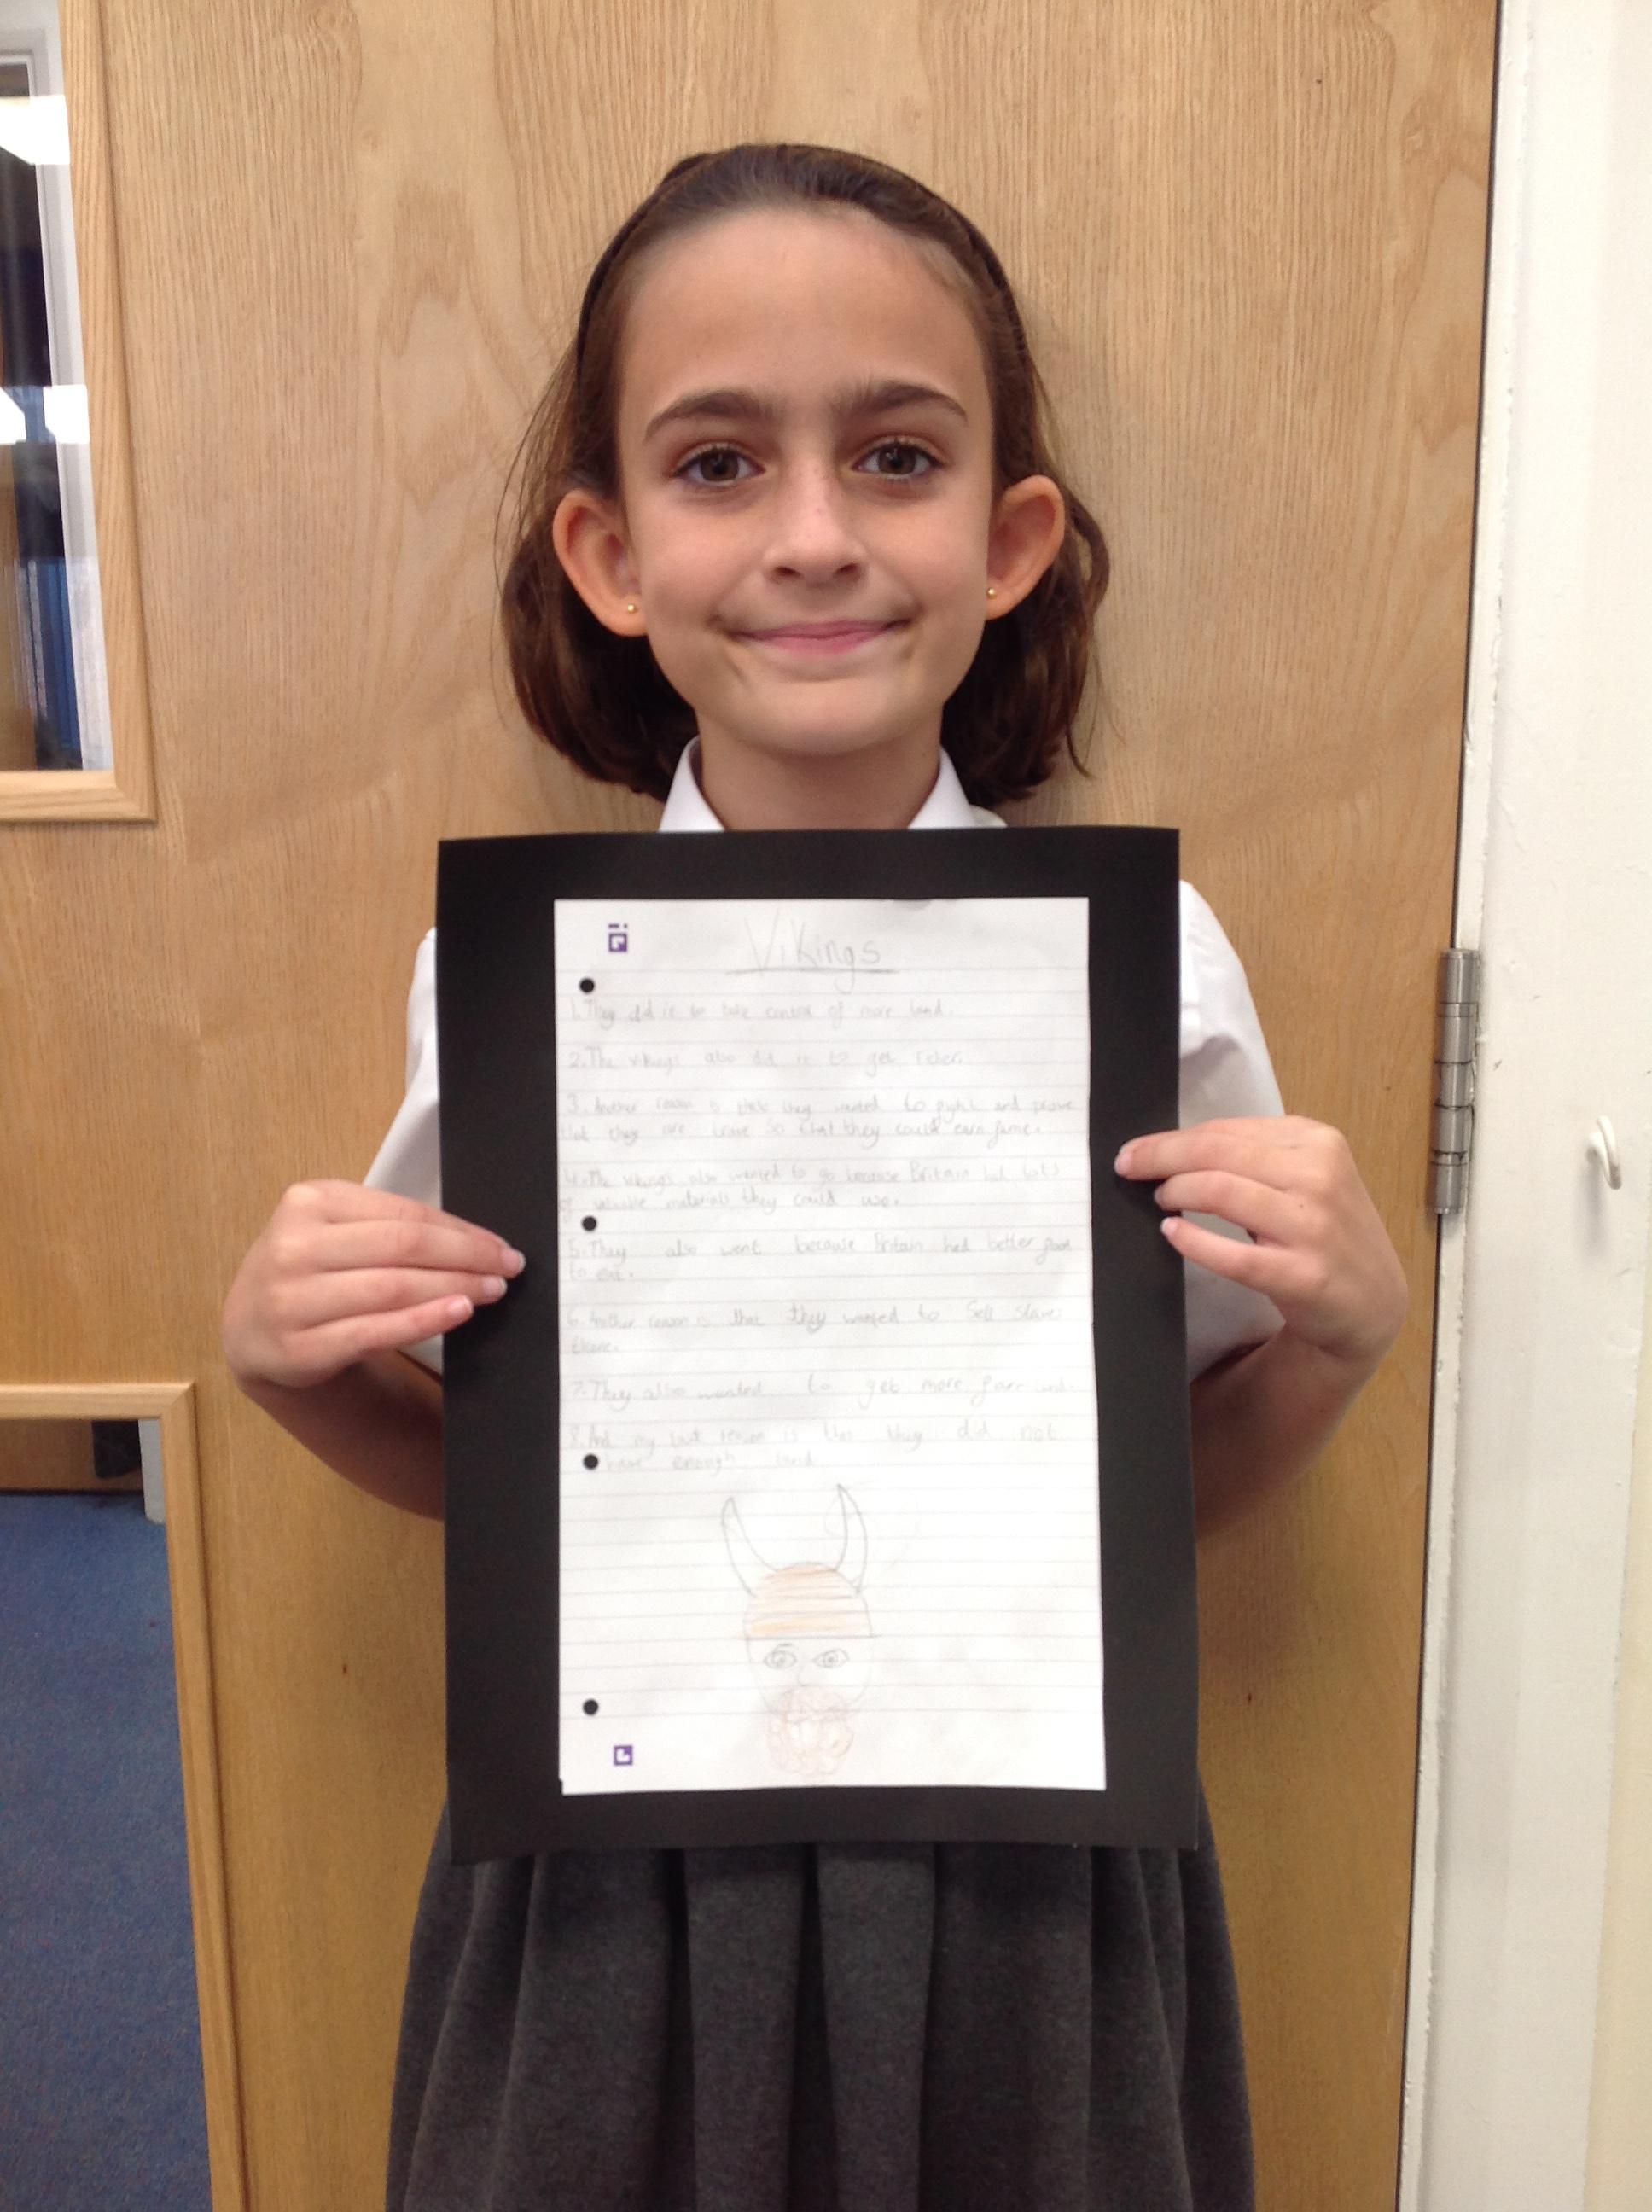 Vikings
1. They did it to take control of more land.
2. The vikings also did it to get richer.
3. Another reason is that they wanted to fight and prove
that they are brave so that they could earn fame.
4. The vikings also wanted to go because Britain had lots
of valuable materials they could use.
5. They also went because Britain had better food
to eat.
6. Another reason is that they wanted to sell slaves
7. They also wanted to get more farm
8. And my last reason is that they did not
have enough land